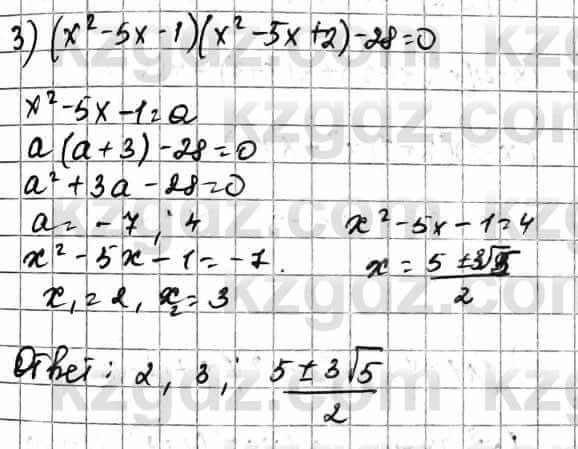 3) (x²-5x-1)(x²-5x+2)-28=0
x²-5x-1=a
a(a+3)-28=0
a²+3a-28=0
a=-7; 4
x²-5x-1=4
x²-5x-1=-7.
x = (5±3√5)/2
x₁=2, x₂=3
Ответ: 2, 3; (5±3√5)/2
kzgdz.com